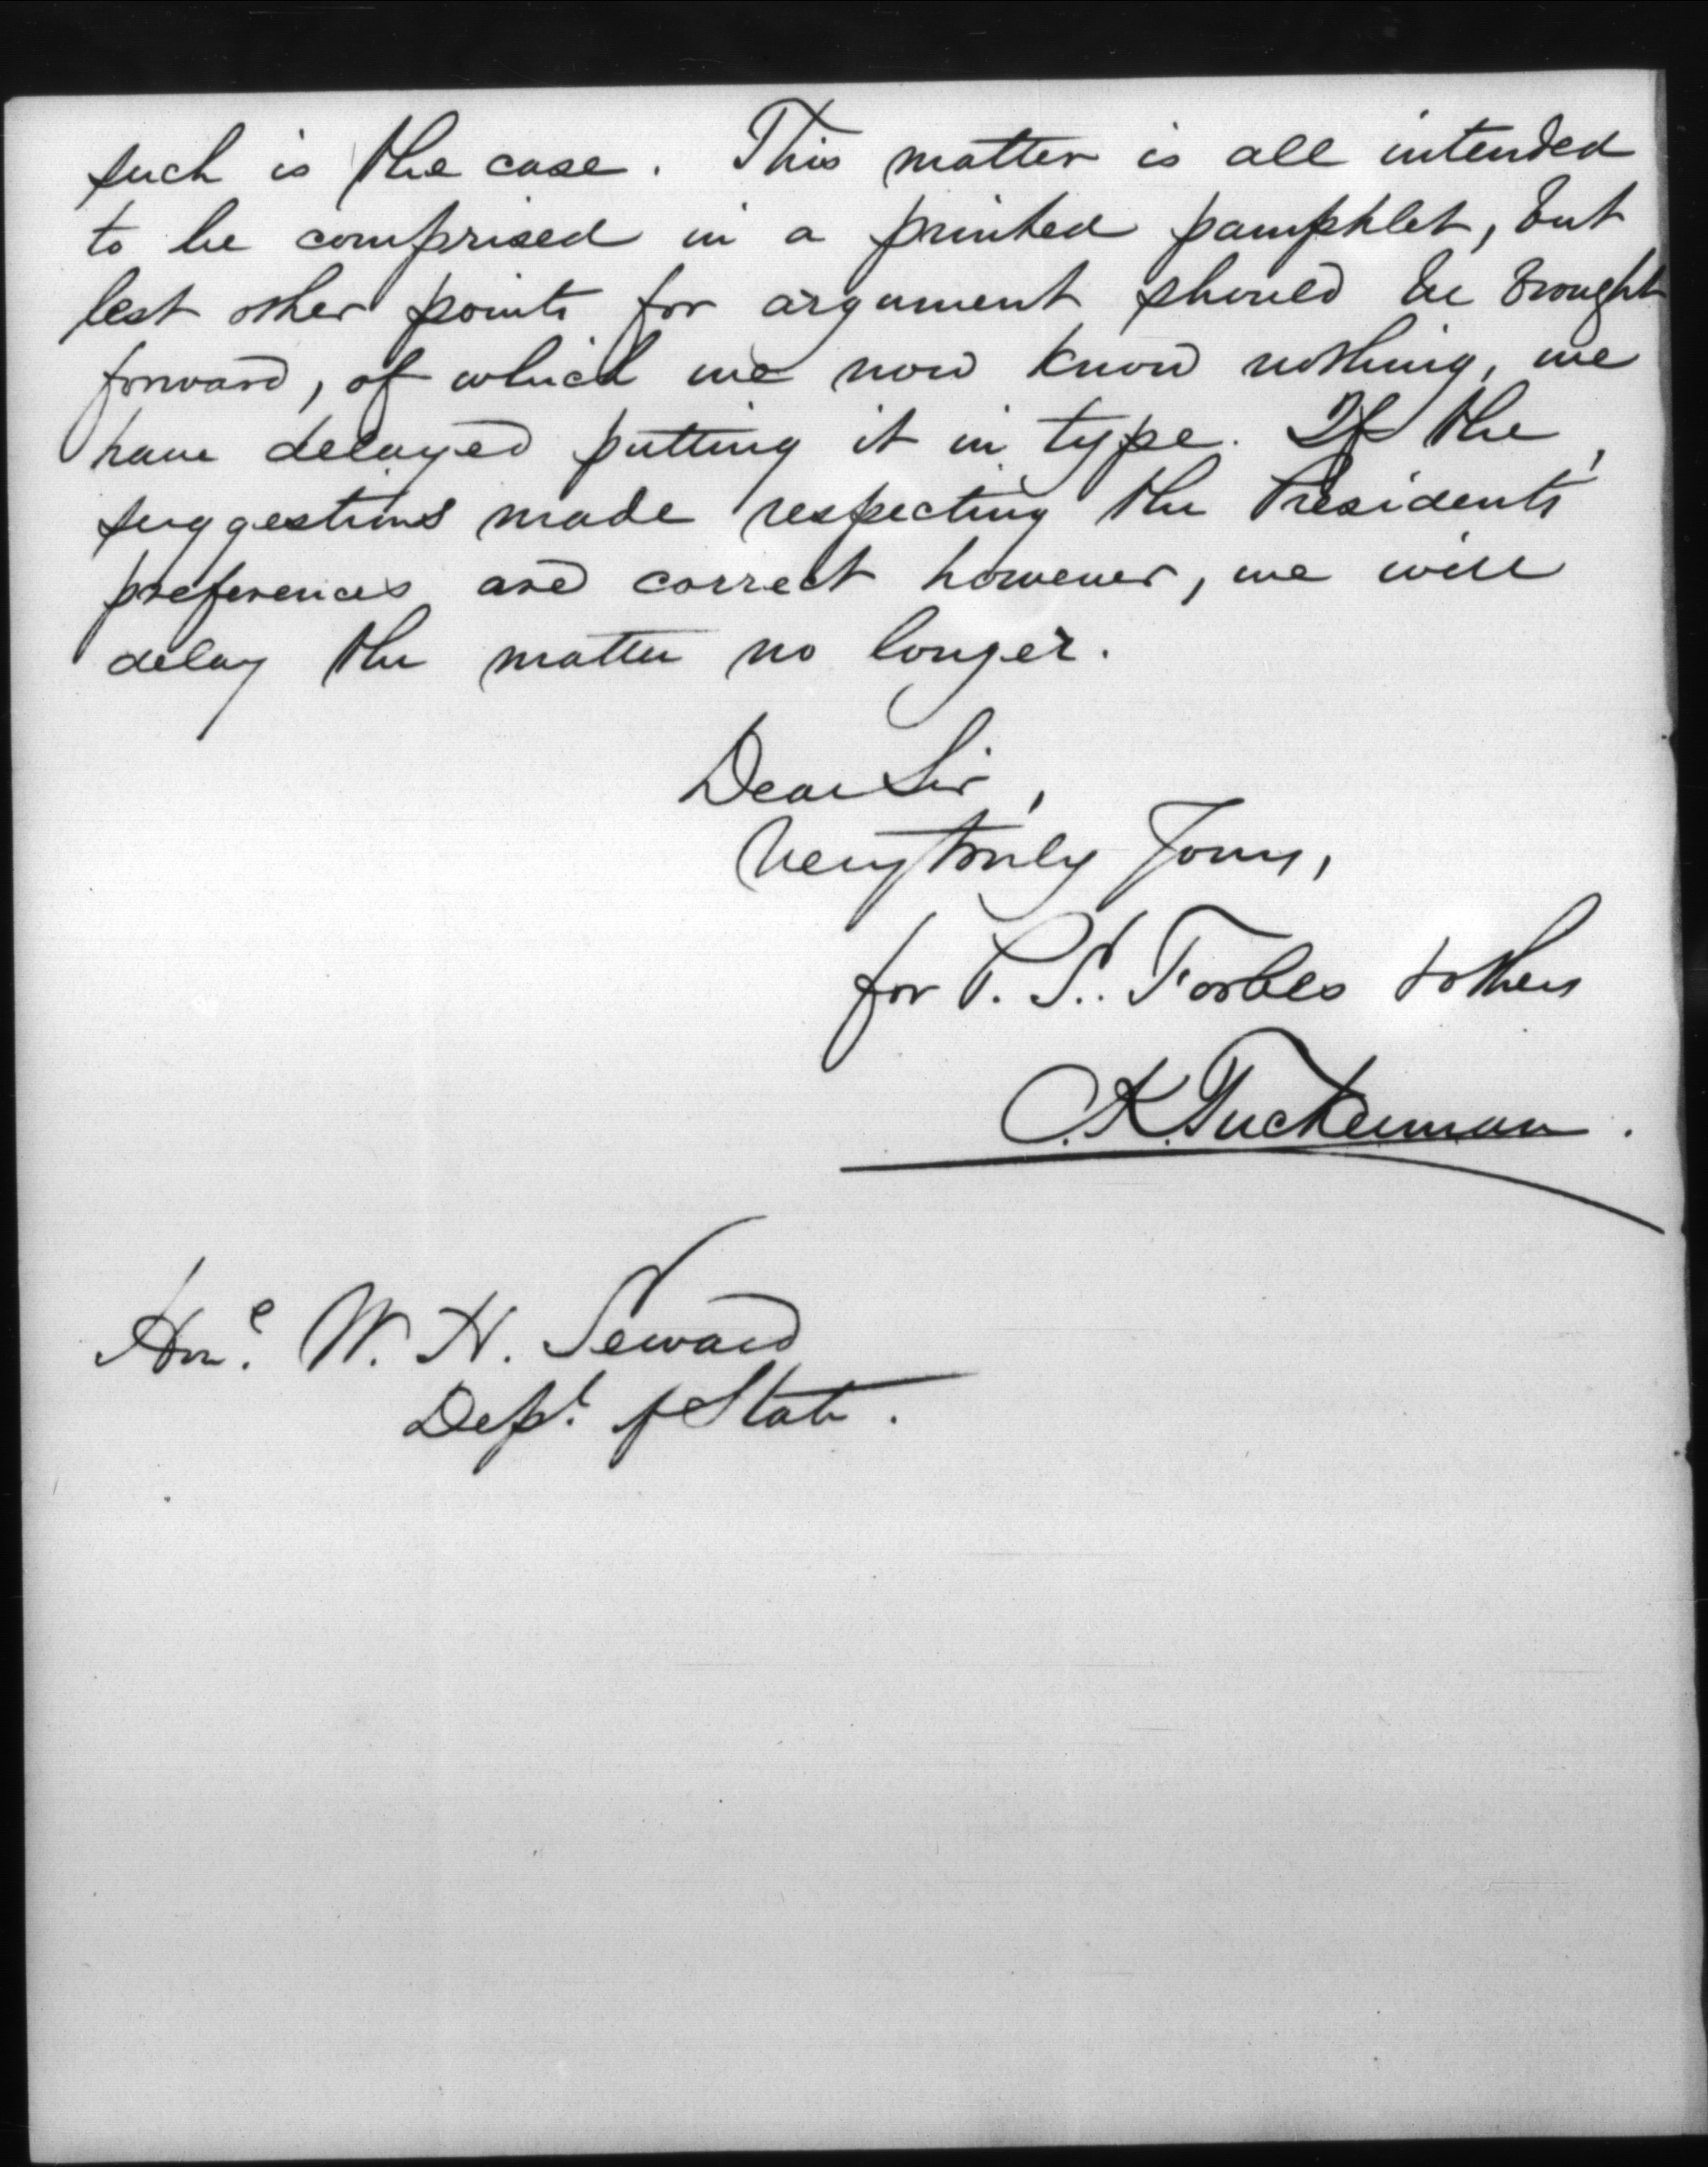 such is the case. This matter is all intended
to be comprised in a printed pamphlet, but
lest other points for argument should be brought
forward, of which we now know nothing, we
have delayed putting it in type. If the
suggestions made respecting the President's
preferences are correct however, we will
delay the matter no longer.
Dear Sir,
Very truly Yours,
for P. S. Forbes & others
C. K. Tuckerman.
Hon.e W. H. Seward
Dept. of State.